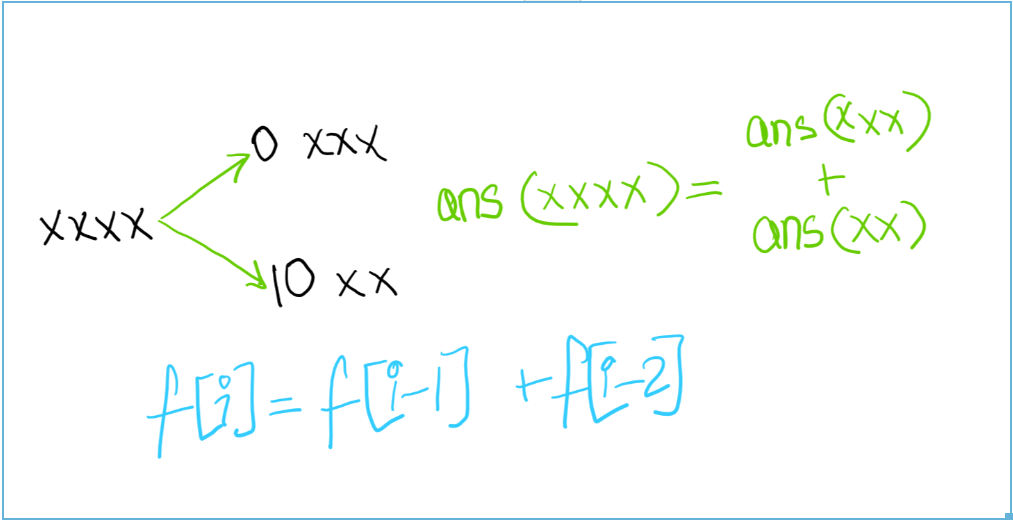 0 xxx
xxxx
10 xx
ans (xxxx) =
ans (xxx)
+
ans (xx)
f[i] = f[i-1] + f[i-2]